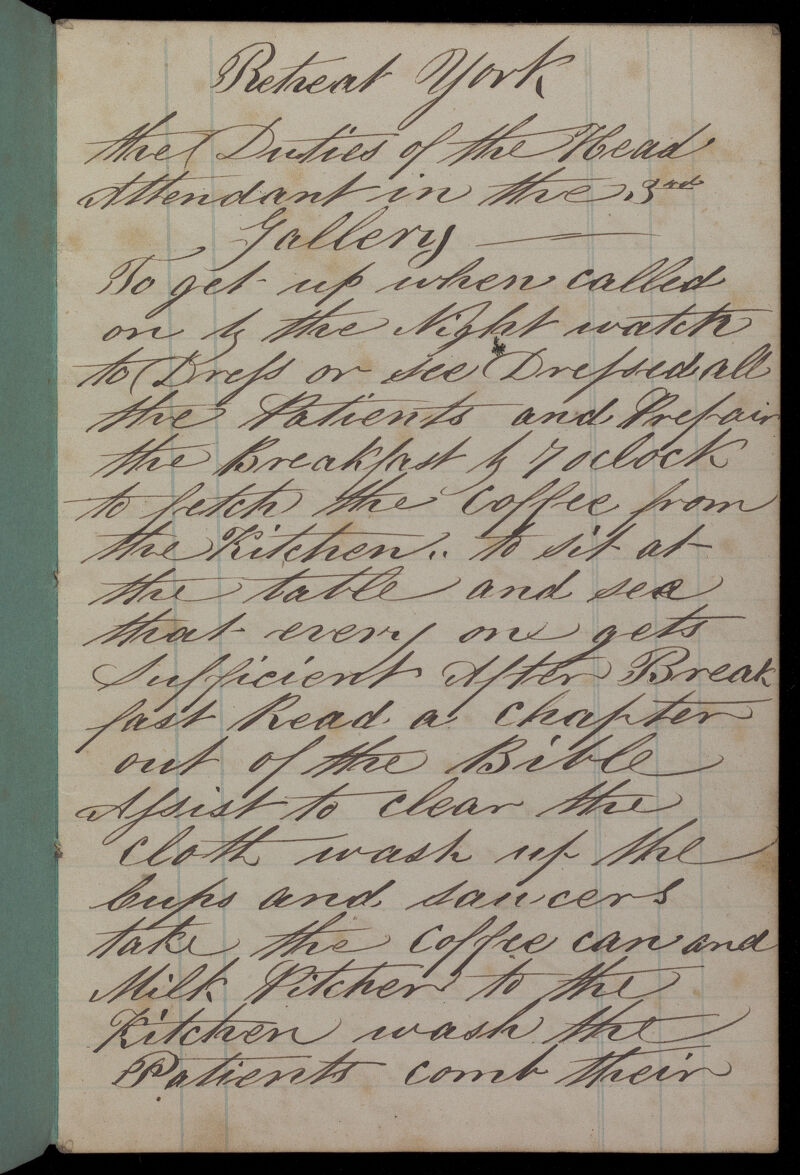 Retreat York
the Duties of the Head
Attendant in the 3rd
Gallery
To get up when called
on by the Night watch
to Dress or see Dressed all
the Patients and Prepair
the Breakfast by 7 oclock
to fetch the Coffee from
the Kitchen.. to sit at
the table and see
that every one gets
Sufficient After Break
fast Read a Chapter
out of the Bible
Assist to clear the
Cloth wash up the
Cups and saucers
take the Coffee can and
Milk Pitcher to the
Kitchen wash the
Patients comb their